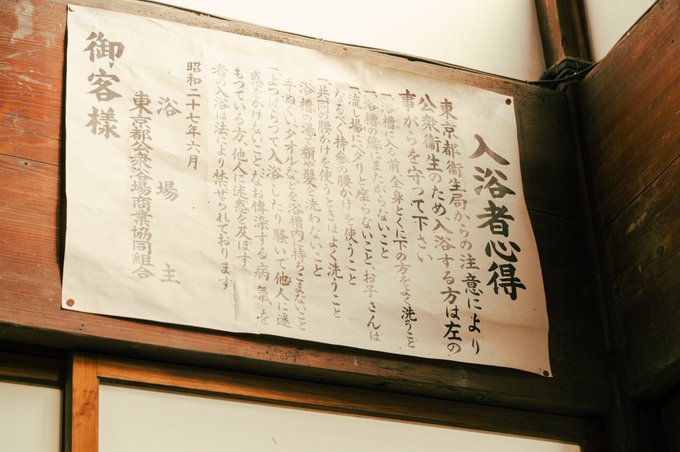 入浴者心得
東京都衛生局からの注意により
公衆衛生のため入浴する方は左の
事がらを守つて下さい
一、浴槽に入る前、全身とくに下の方をよく洗うこと
一、浴槽の縁にまたがらないこと
一、流し場にベタリと座らないこと お子さんは
なるべく持參の腰かけを使うこと
一、共同の腰かけを使うときはよく洗うこと
一、浴槽の湯で頭、髪を洗わないこと
手ぬぐい、タオルなどを浴槽内に持ちこまないこと
一、よつぱらつて入浴したり騒いで他人に迷
惑をかけないこと なお傳染する病氣を
もつている方、他人に迷惑を及ぼす
者の入浴は法により禁ぜられております
昭和二十七年六月
浴場主
東京都公衆浴場商業協同組合
御客様